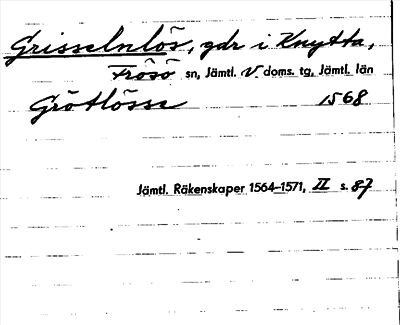 Grisselnlös, gdr i Knytta,
Frösö sn, Jämtl. V. doms. tg, Jämtl. län
Grötlösse 1568
Jämtl. Räkenskaper 1564-1571, II s. 87